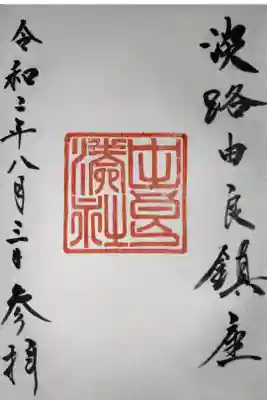 淡路由良鎮座
由良湊社
令和二年八月三日参拝